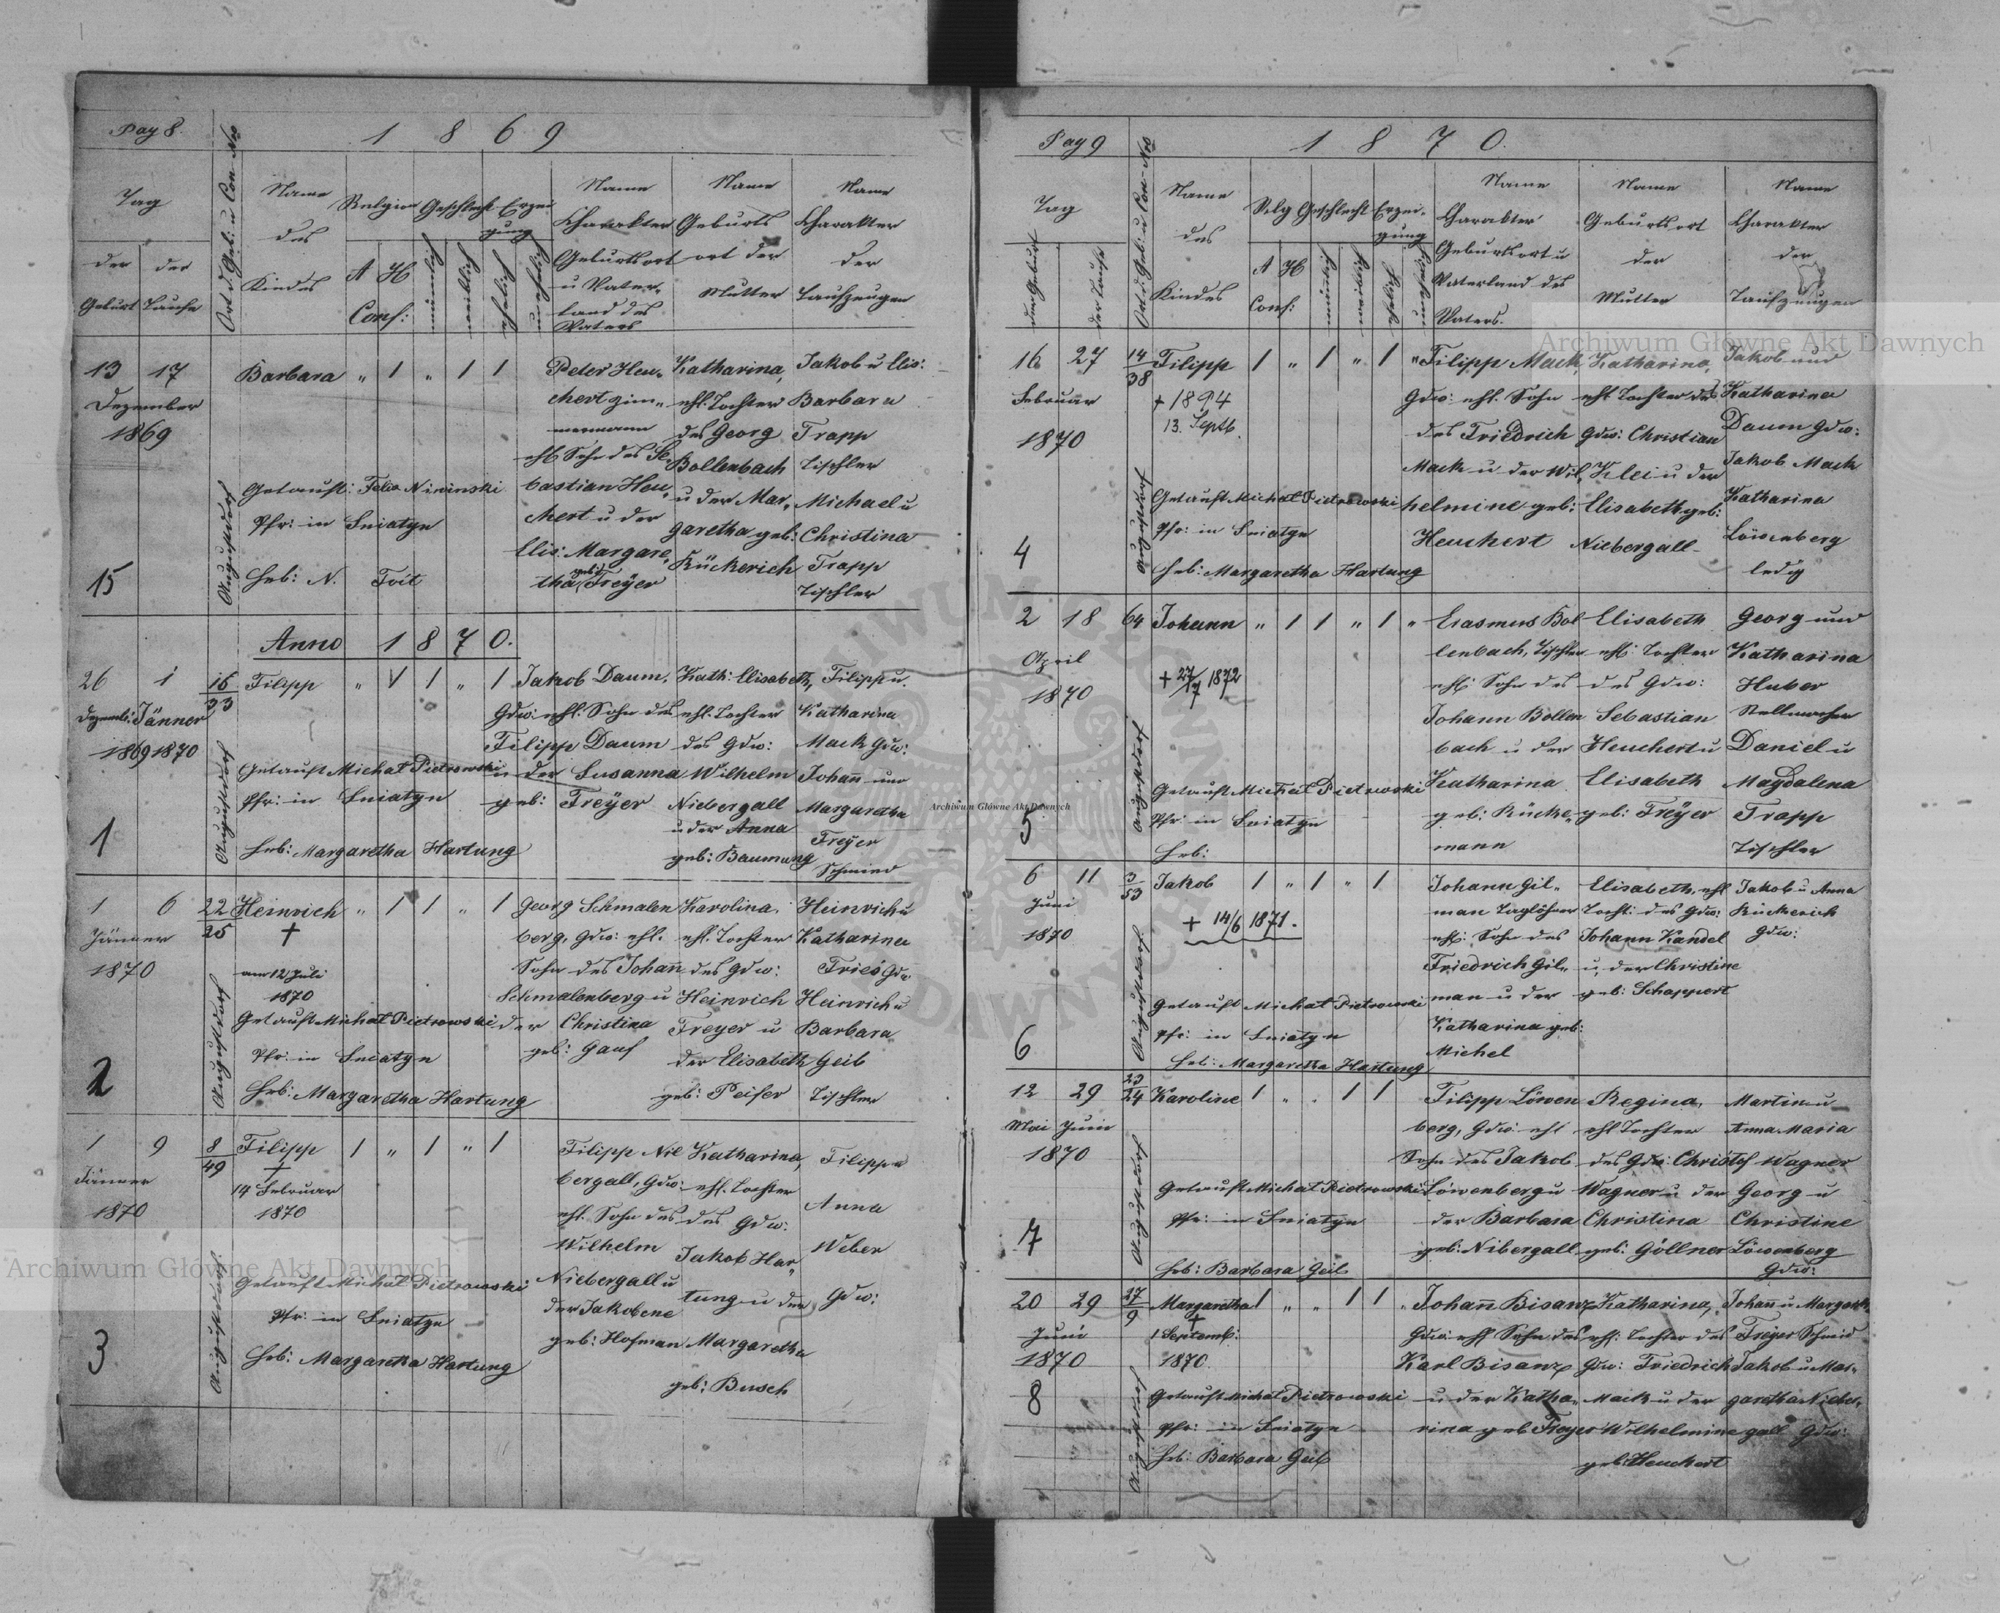 Pag 8.
1 8 6 9
Tag
der Geburt
der Taufe
Ort d. Geb: u Con-Nro
Name des Kindes
Religion
A H
Conf:
Geschlecht
männlich
weiblich
Erzeugung
ehelich
unehelich
Name
Charakter
Geburtsort
u Vater-
land des
Vaters
Name
Geburts
ort der
Mutter
Name
Charakter
der
Taufzeugen
13 17
Dezember
1869
15
Augustdorf
Barbara " 1 " 1 1
Getauft: Felix Nininski
Pfr: in Sniatyn
Heb: N. Toit
Peter Heu-
chert zim-
mermann
ehl Sohn des Se-
bastian Heu-
chert u der
Elis: Margare-
tha geb: Freÿer
Katharina,
ehl. Tochter
des Georg
Bollenbach
u der Mar-
garetha geb:
Rückerich
Jakob u Elis:
Barbara
Trapp
Tischler
Michael u
Christina
Trapp
Tischler
Anno 1 8 7 0.
26 1
Dezemb: Jänner
1869 1870
1
16
33
Augustdorf
Filipp " 1 1 " 1
Getauft Michal Pietrowski
Pfr: in Sniatyn
Heb: Margaretha Hartung
Jakob Daum,
Gdw: ehl. Sohn des
Filipp Daum
u der Susanna
geb: Freÿer
Kath: Elisabeth,
ehl. Tochter
des Gdw:
Wilhelm
Niebergall
u der Anna
geb: Baumung
Filipp u.
Katharina
Mack Gdw:
Johan̄ und
Margaretha
Freÿer
Schmied
1 6
Jänner
1870
2
22
25
Augustdorf
Heinrich " 1 1 " 1
+
am 12 Juli
1870
Getauft Michal Pietrowski
Pfr: in Sniatyn
Heb: Margaretha Hartung
Georg Schmalen
berg, Gdw: ehl.
Sohn des Johan̄
Schmalenberg u
der Christina
geb: Gauf
Karolina,
ehl. Tochter
des Gdw:
Heinrich
Freyer u
der Elisabeth
geb: Peifer
Heinrich u
Katharina
Fries Gdw
Heinrich u
Barbara
Geib
Tischler
1 9
Jänner
1870
3
8
49
Augustdorf
Filipp 1 " 1 " 1
+
14 Februar
1870
Getauft Michal Pietrowski
Pfr: in Sniatyn
Heb: Margaretha Hartung
Filipp Nie
bergall, Gdw:
ehl. Sohn des
Wilhelm
Niebergall u
der Jakobene
geb: Hofman
Katharina,
ehl. Tochter
des Gdw:
Jakob Har-
tung u der
Margaretha
geb: Busch
Filipp u
Anna
Weber
Gdw:
Pag 9
1 8 7 0.
Tag
der Geburt
der Taufe
Ort d. Geb: u Con-Nro
Name
des
Kindes
Relg
A H
Conf:
Geschlecht
männlich
weiblich
Erzeu-
gung
ehelich
unehelich
Name
Charakter
Geburtsort u
Vaterland des
Vaters.
Name
Geburtsort
der
Mutter
Name
Charakter
der
Taufzeugen
16 27
Februar
1870
4
14
38
Augustdorf
Filipp 1 " 1 " 1 "
+ 1894
13. Septb.
Getauft Michal Pietrowski
Pfr: in Sniatyn
Heb: Margaretha Hartung
Filipp Mack,
Gdw: ehl. Sohn
des Friedrich
Mack u der Wil-
helmine geb:
Heuchert
Katharina,
ehl Tochter des
Gdw: Christian
Klei u der
Elisabeth geb:
Niebergall
Jakob und
Katharina
Daum Gdw:
Jakob Mack
Katharina
Löwenberg
ledig
2 18
April
1870
5
64
Augustdorf
Johann " 1 1 " 1 "
+ 27/7 1872
Getauft Michal Pietrowski
Pfr: in Sniatyn
Heb:
Erasmus Bol
lenbach, Tischler
ehl: Sohn des
Johann Bollen
bach u der
Katharina
geb: Rücke-
mann
Elisabeth
ehl: Tochter
des Gdw:
Sebastian
Heuchert u
Elisabeth
geb: Freÿer
Georg und
Katharina
Huber
Stellmacher
Daniel u
Magdalena
Trapp
Tischler
6 11
Juni
1870
6
3
53
Augustdorf
Jakob 1 " 1 " 1
+ 14/6 1871.
Getauft Michal Pietrowski
Pfr: in Sniatyn
Heb: Margaretha Hartung
Johann Gil-
man Taglöhner
ehl: Sohn des
Friedrich Gil-
man u der
Katharina geb:
Michel
Elisabeth, ehl
Tocht: des Gdw:
Johann Kandel
u der Christine
geb: Schappert
Jakob u Anna
Rückerich
Gdw:
12 29
Mai Juni
1870
7
23
24
Augustdorf
Karoline 1 " . 1 1
Getauft Michal Pietrowski
Pfr: in Sniatyn
Heb: Barbara Geib
Filipp Löwen
berg, Gdw: ehl
Sohn des Jakob
Löwenberg u
der Barbara
geb: Nibergall
Regina,
ehl Tochter
des Gdw: Christof
Wagner u der
Christina
geb: Göllner
Martin u
Anna Maria
Wagner
Georg u
Christine
Löwenberg
Gdw:
20 29
Juni
1870
8
27
9
Augustdorf
Margaretha 1 " " 1 1 "
+
1 Septemb:
1870.
Getauft Michal Pietrowski
Pfr: in Sniatyn
Heb: Barbara Geib
Johan̄ Bisanz,
Gdw: ehl Sohn des
Karl Bisanz
u der Katha-
rina geb Freyer
Katharina,
ehl: Tochter des
Gdw: Friedrich
Mack u der
Wilhelmine
geb: Heuchert
Johan̄ u Margareth:
Freyer Schmid
Jakob u Mar-
garetha Nieber-
gall Gdw:
Archiwum Główne Akt Dawnych
Archiwum Główne Akt Dawnych
Archiwum Główne Akt Dawnych